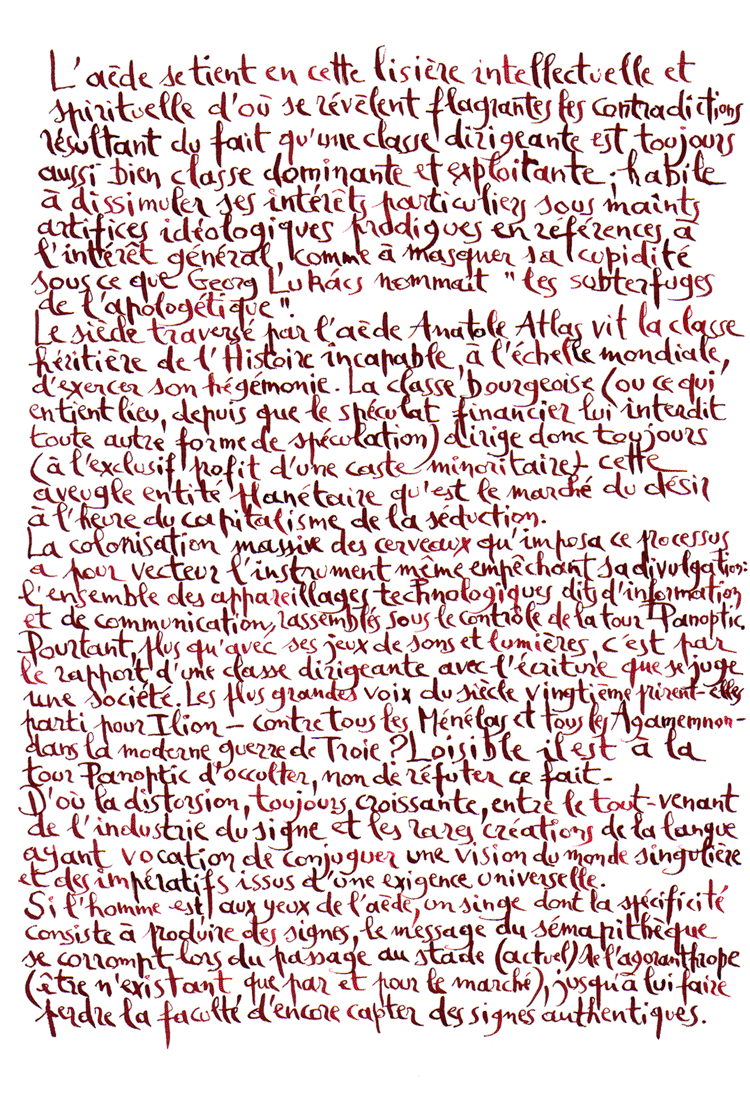 L'aède se tient en cette lisière intellectuelle et
spirituelle d'où se révèlent flagrantes les contradictions
résultant du fait qu'une classe dirigeante est toujours
aussi bien classe dominante et exploitante ; habile
à dissimuler ses intérêts particuliers sous maints
artifices idéologiques prodigues en références à
l'intérêt général, comme à masquer sa cupidité
sous ce que Georg Lukács nommait " les subterfuges
de l'apologétique ".
Le siècle traversé par l'aède Anatole Atlas vit la classe
héritière de l'Histoire incapable, à l'échelle mondiale,
d'exercer son hégémonie. La classe bourgeoise (ou ce qui
en tient lieu, depuis que le spéculat financier lui interdit
toute autre forme de spéculation) dirige donc toujours
(à l'exclusif profit d'une caste minoritaire) cette
aveugle entité planétaire qu'est le marché du désir
à l'heure du capitalisme de la séduction.
La colonisation massive des cerveaux qu'imposa ce processus
a pour vecteur l'instrument même empêchant sa divulgation:
l'ensemble des appareillages technologiques dits d'information
et de communication, rassemblés sous le contrôle de la tour Panoptic.
Pourtant, plus qu'avec ses jeux de sons et lumières, c'est par
le rapport d'une classe dirigeante avec l'écriture que se juge
une société. Les plus grandes voix du siècle vingtième prirent-elles
parti pour Ilion – contre tous les Ménélas et tous les Agamemnon –
dans la moderne guerre de Troie ? Loisible il est à la
tour Panoptic d'occulter, non de réfuter ce fait.
D'où la distorsion, toujours croissante, entre le tout-venant
de l'industrie du signe et les rares créations de la langue
ayant vocation de conjuguer une vision du monde singulière
et des impératifs issus d'une exigence universelle.
Si l'homme est, aux yeux de l'aède, un singe dont la spécificité
consiste à produire des signes, le message du sémapithèque
se corrompt lors du passage au stade (actuel) de l'agoranthrope
(être n'existant que par et pour le marché), jusqu'à lui faire
perdre la faculté d'encore capter des signes authentiques.